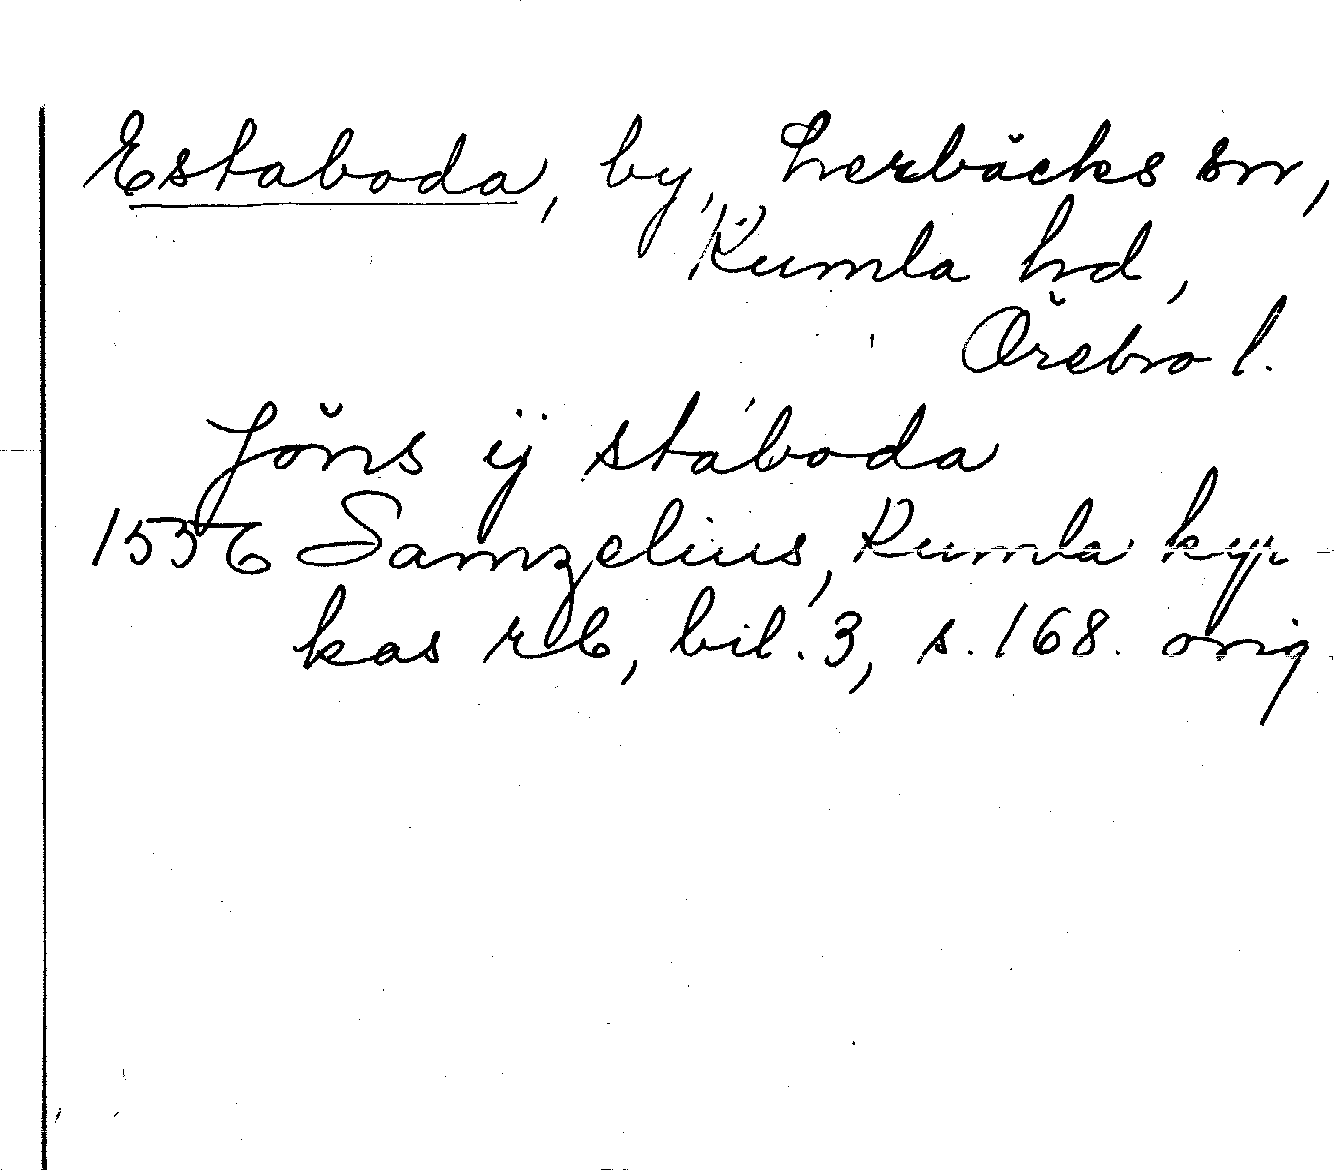 Estaboda, by, Lerbäcks sn,
Kumla hd,
Örebro l.
Jöns ij staboda
1556 Samzelius, Kumla kyr-
kas rb, bil. 3, s. 168. orig.